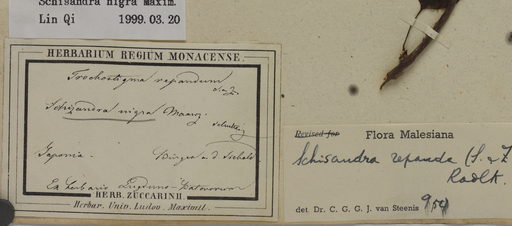 Schisandra nigra Maxim.
Lin Qi 1999.03.20
HERBARIUM REGIUM MONACENSE.
Trochostigma repandum
S. & Z.
Schizandra nigra Maxim.
Japonia. Bürger a. d. Siebold
Ex herbario Lugduno-Batavorum
HERB. ZUCCARINII.
Herbar. Univ. Ludov. Maximil.
Revised for Flora Malesiana
Schisandra repanda (S. & Z
Radlk.
det Dr. C. G. G. J. van Steenis 9/54